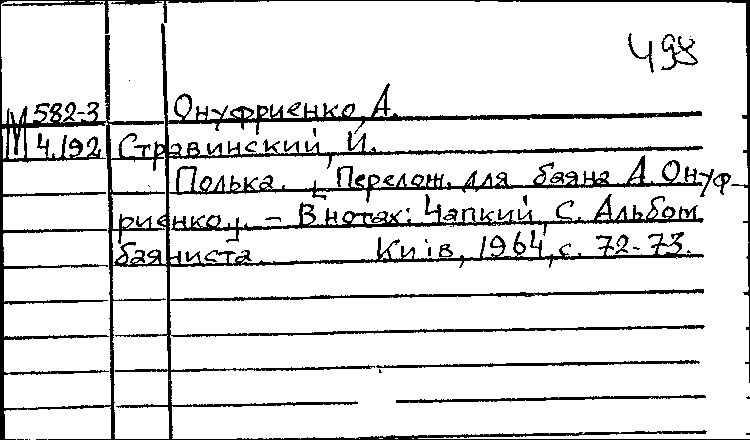 498
М 582-3 Онуфриенко, А.
4.192 Стравинский, И.
Полька. [Перелож. для баяна А. Онуф-
риенко]. - В нотах: Чапкий, С. Альбом
баяниста. Київ, 1964, с. 72-73.